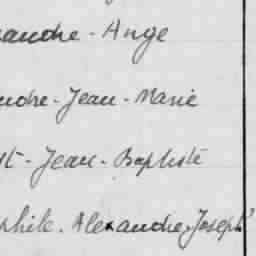 andre - Ange
andre - Jean - Marie
st - Jean - Baptiste
phile - Alexandre, Joseph